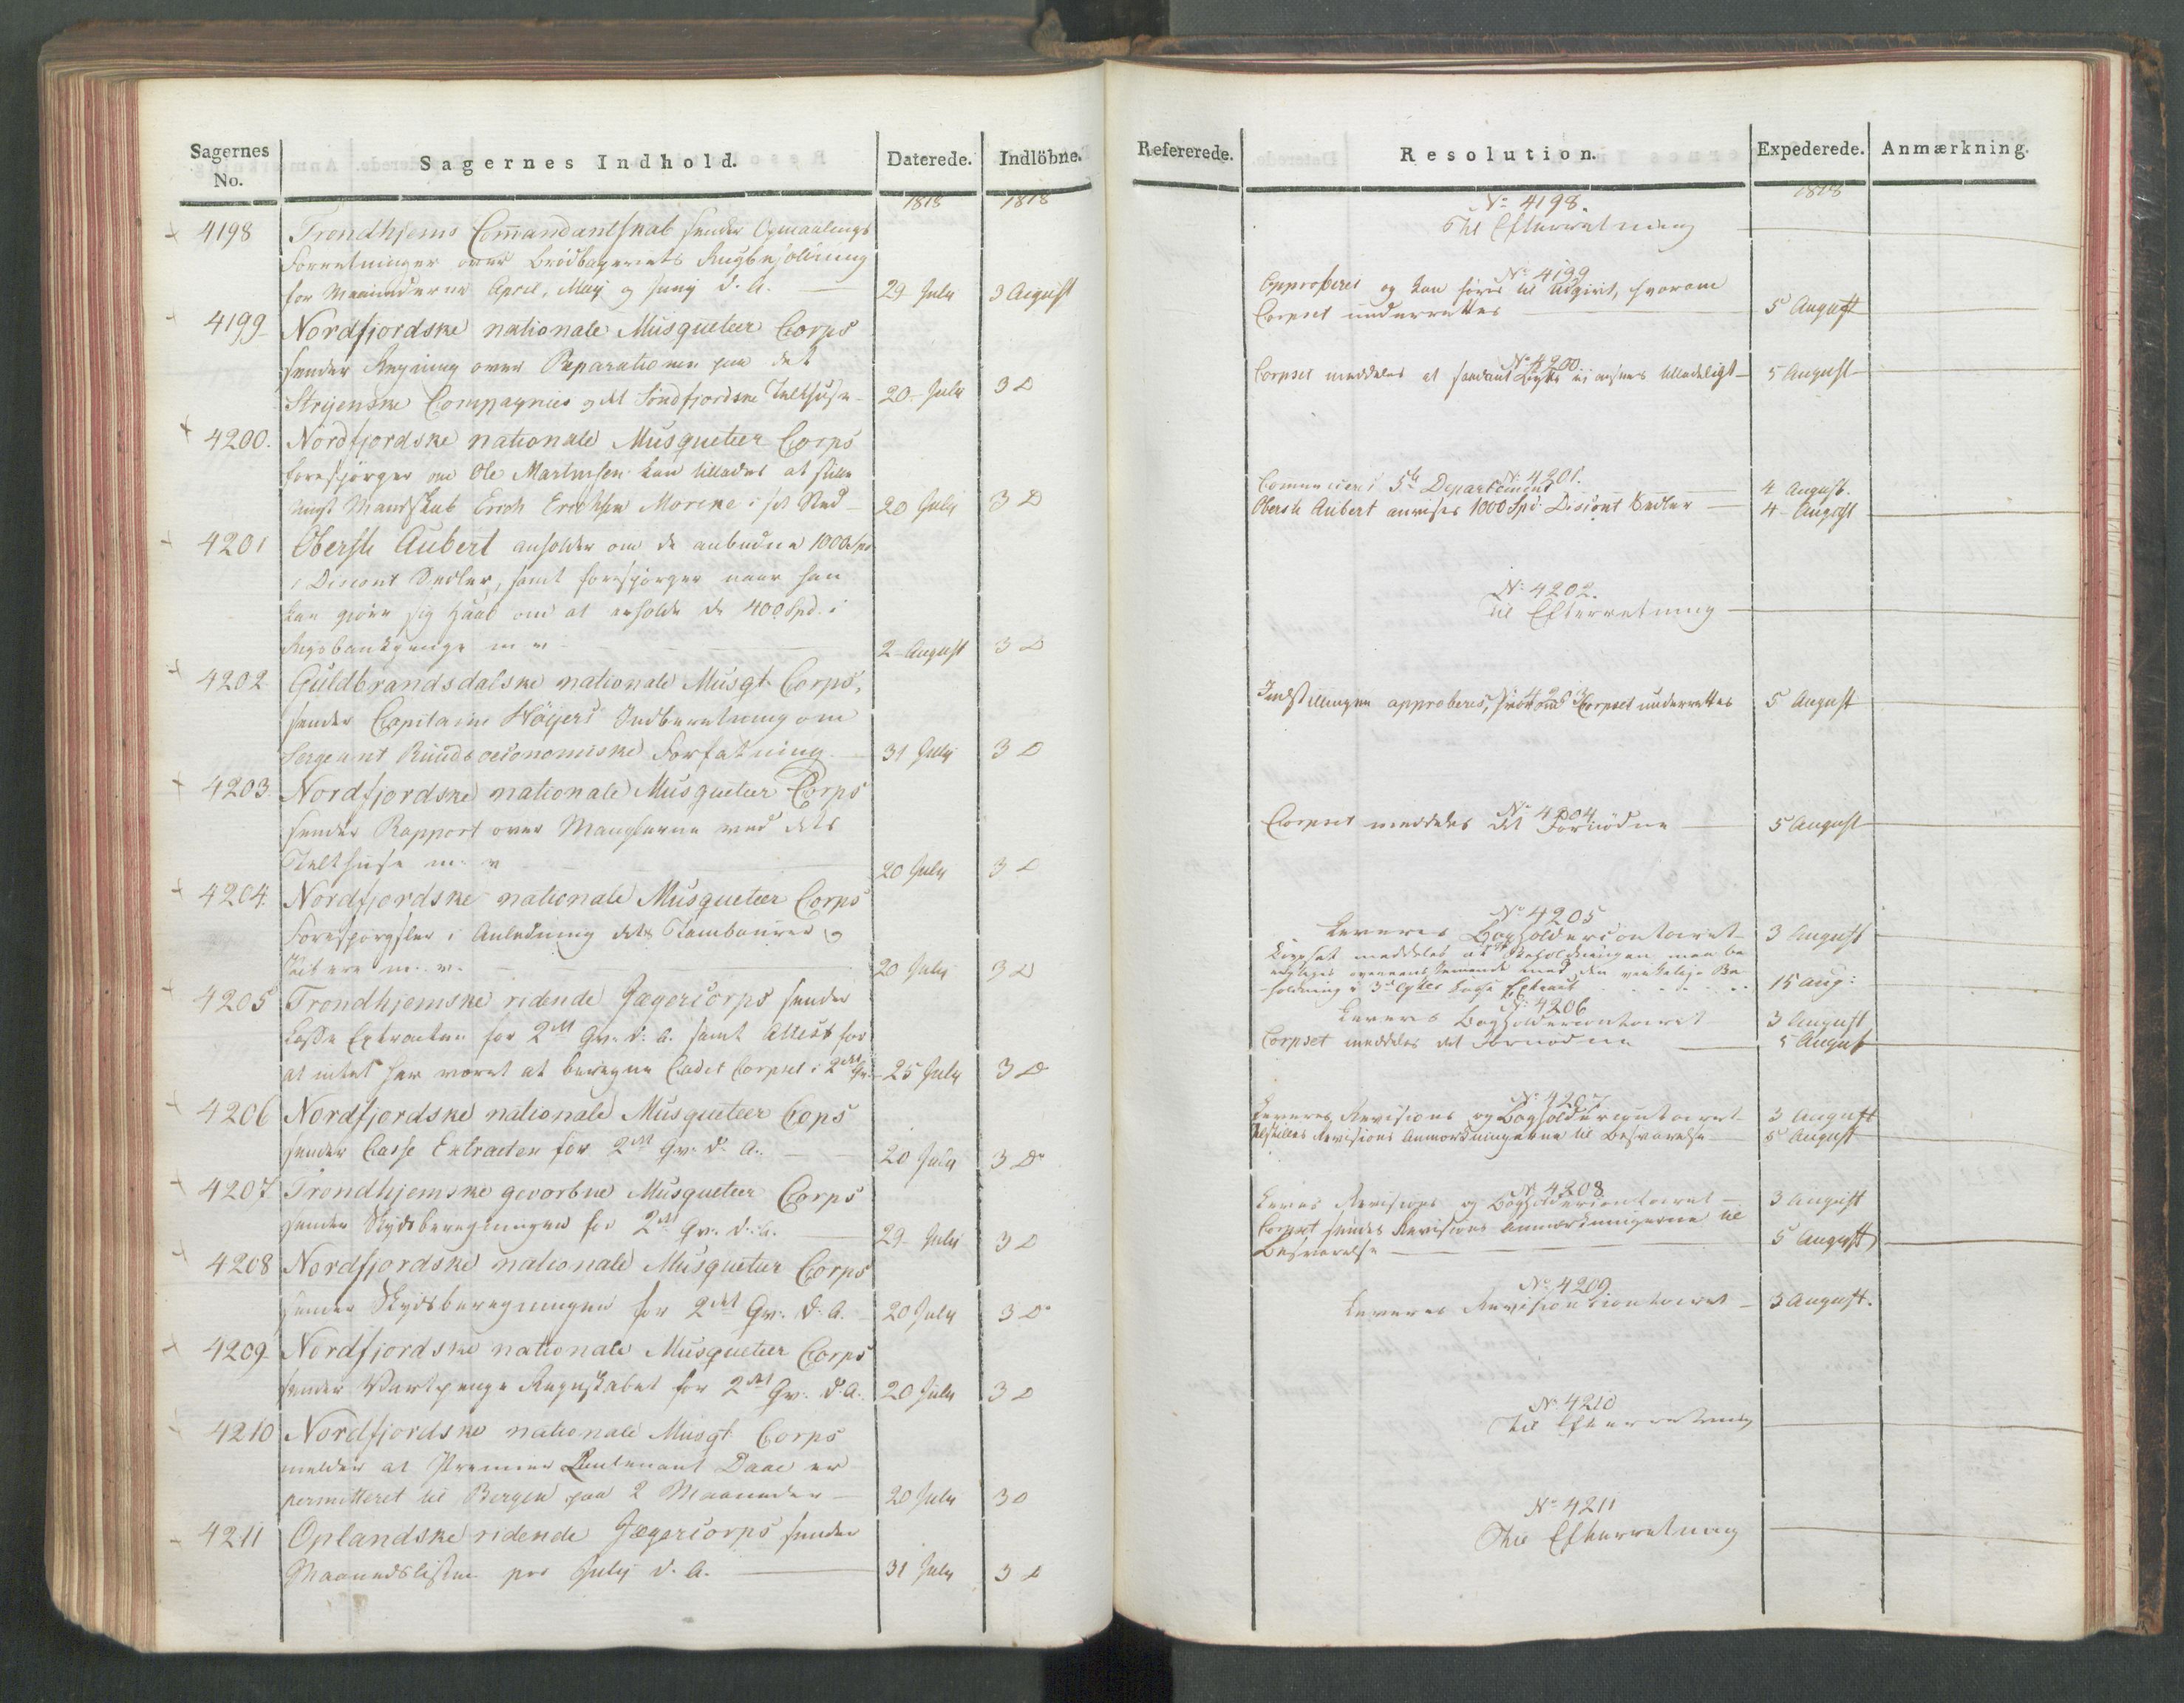 Sagernes
No.
Sagernes Indhold.
Daterede.
Indlöbne.
1818
1818
4198 Trondhjems Com̄andantskab sender Opmaalings
Forretninger over Brödbageriets Rugbeholdning
for Maanederne April, May og Juny d. A. 29 July 3 August
4199 Nordfjordske nationale Musqueteer Corps
sender Regning over Reparationer paa det
Stryenske Compagnies og det Söndfjordske Telthuse 20 July 3 D
4200. Nordfjordske nationale Musqueteer Corps
forespörger om Ole Martinsen kan tillades at stille
Mandskab Erich Erichsen Morene i sit Sted 20 July 3 D
4201 Oberste Aubert anholder om de anbudne 1000 Spd
i Discont Sedler, samt forespörger naar han
kan gjöre sig Haab om at erholde de 400 Spd. i
Rigsbankpenge m. v. 2 August 3 D
4202 Guldbrandsdalske nationale Musqt. Corps,
sender Capitaine Höyers Indberetning om
Sergeant Ruuds oeconomiske Forfatning 31 July 3 D
4203. Nordfjordske nationale Musqueteer Corps
sender Rapport over Manglerne ved dets
Telthuse m. v. 20 July 3 D
4204. Nordfjordske nationale Musqueteer Corps
Forespörgsler i Anledning dets Tambourer og
m. v. 20 July 3 D
4205 Trondhjemske ridende Jægercorps sender
Casse Extracten for 2det Qv. d. A. samt Attest for
at intet har været at beregne Cadet Corpset i 2det Qv. 25 July 3 D
4206 Nordfjordske nationale Musqueteer Cops
sender Casse Extracten for 2det Qv. d. A. 20 July 3 D
4207 Trondhjemske gevorbne Musqueteer Corps
sender Skydsberegningen for 2det Qv. d. A. 29 July 3 D
4208 Nordfjordske nationale Musqueteer Corps
sender Skydsberegningen for 2det Qv. d. A. 20 July 3 D
4209 Nordfjordske nationale Musqueteer Corps
sender Vartpenge Regnskabet for 2det Qv. d. A. 20 July 3 D
4210 Nordfjordske nationale Musqt. Corps
melder at Premier Lieutenant Daae er
permitteret til Bergen paa 2 Maaneder 20 July 3 D
4211 Oplandske ridende Jægercorps sender
Maanedslisten pro July d. A. 31 July 3 D
Refererede.
Resolution.
Expederede.
Anmærkning.
1818
No 4198.
Til Efterretning
No 4199
Approberes og kan föres til Udgivt, hvorom
Corpset underrettes 5 August
No 4200
Corpset meddeles at saadant Bytte ei ansees tilladeligt 5 August
No 4201.
Communiceres 5te Departement 4 August.
Oberste Aubert anvises 1000 Spd. Discont Sedler 4 August
No 4202.
Til Efterretning
No 4203
Indstillingen approberes, hvorom Corpset underrettes 5 August
No 4204
Corpset meddeles det Fornödne 5 August
No 4205
Leveres Bogholdercontoiret 3 August
Corpset meddeles at Beholdningen maa be
overeensstemmende med den virkelige Be
holdning i 3de Casse Extract 15 Aug:
No 4206
Leveres Bogholdercontoiret 3 August
Corpset meddeles det Fornödne 5 August
No 4207
Leveres Revisions og Bogholdercontoiret 3 August
Tilstilles Revisions Anmærkningerne til Besvarelse 5 August
No 4208
Leveres Revisions og Bogholdercontoiret 3 August
Corpset sendes Revisions Anmærkningerne til
Besvarelse 5 August
No 4209
Leveres Revisionscontoiret 3 August.
No 4210
Til Efterretning
No 4211
Til Efterretning